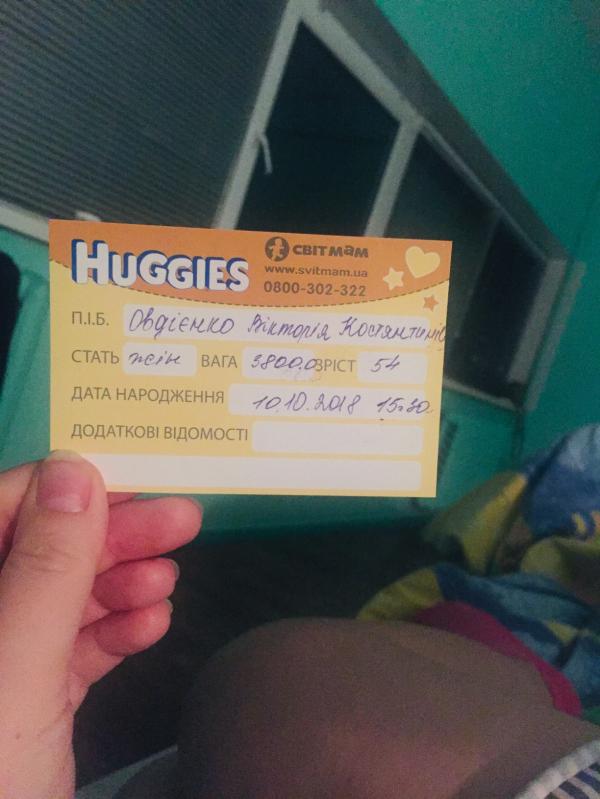 HUGGIES
СВІТ МАМ
www.svitmam.ua
0800-302-322
П.І.Б. Овдієнко Вікторія Костянтинів
СТАТЬ жін ВАГА 3800,0 ЗРІСТ 54
ДАТА НАРОДЖЕННЯ 10.10.2018 15:30
ДОДАТКОВІ ВІДОМОСТІ